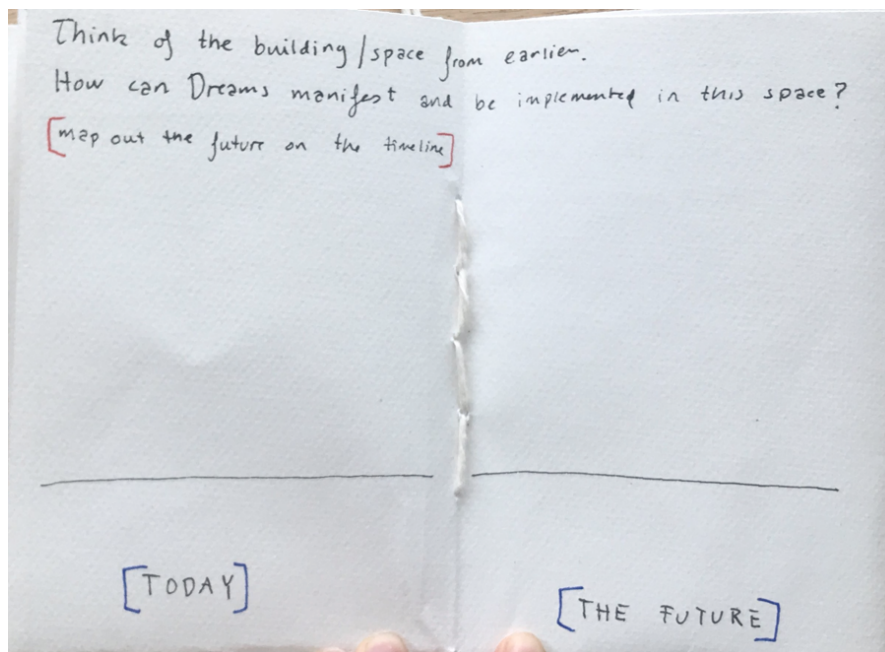 Think of the building/space from earlier.
How can Dreams manifest and be implemented in this space?
[map out the future on the timeline]
[TODAY]
[THE FUTURE]